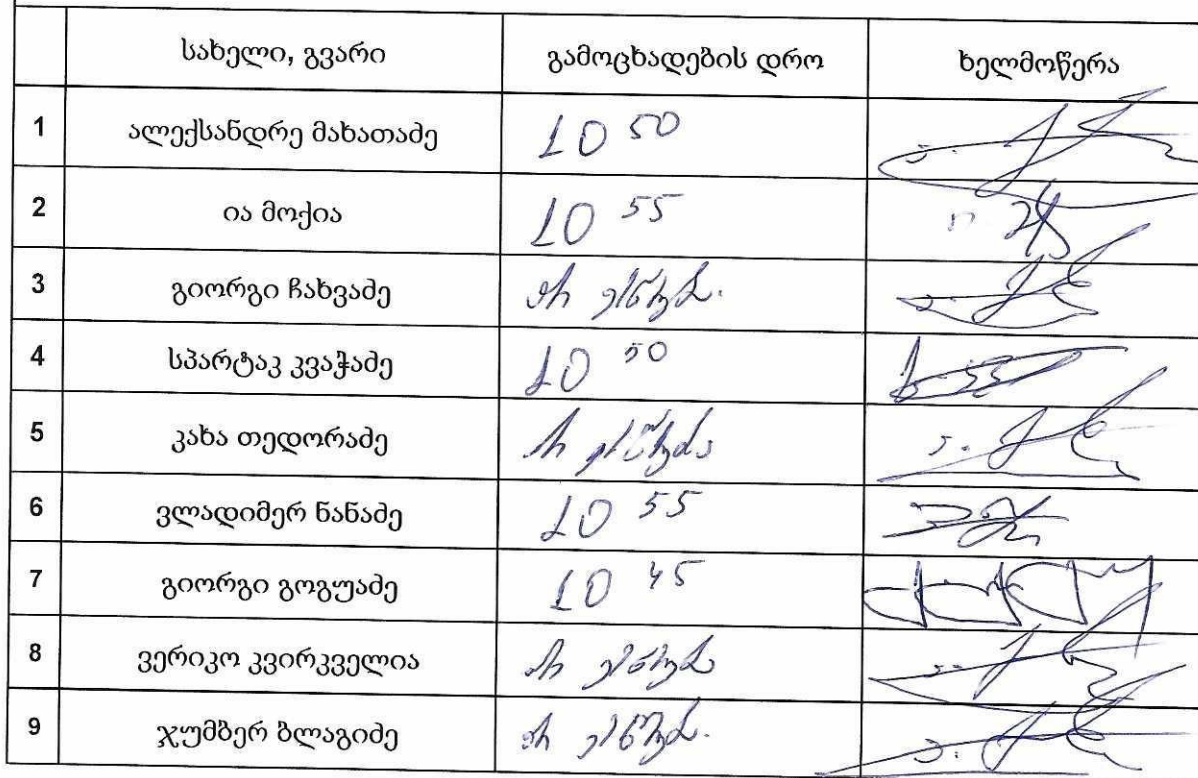 სახელი, გვარი გამოცხადების დრო ხელმოწერა
1 ალექსანდრე მახათაძე 10 50
2 ია მოქია 10 55
3 გიორგი ჩახვაძე არ ესწრება
4 სპარტაკ კვაჭაძე 10 50
5 კახა თედორაძე არ ესწრება
6 ვლადიმერ ნანაძე 10 55
7 გიორგი გოგუაძე 10 45
8 ვერიკო კვირკველია არ ესწრება
9 ჯუმბერ ბლაგიძე არ ესწრება